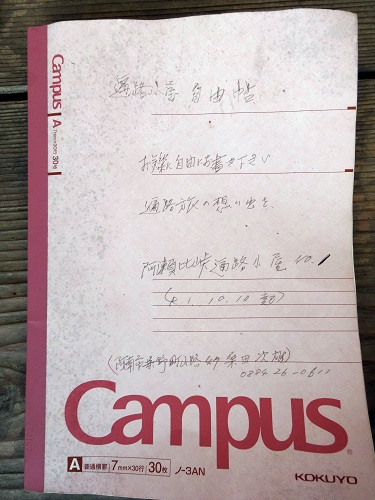 Campus A 7mm×30行 30枚
遍路小屋 自由帖
自由にお書き下さい
遍路旅の想い出を
阿瀬比峠遍路小屋 NO.1
1 10.10 記)
(阿南市桑野町山路
0884-26-0611
Campus
A 普通横罫 7mm×30行 30枚 ノ-3AN
KOKUYO